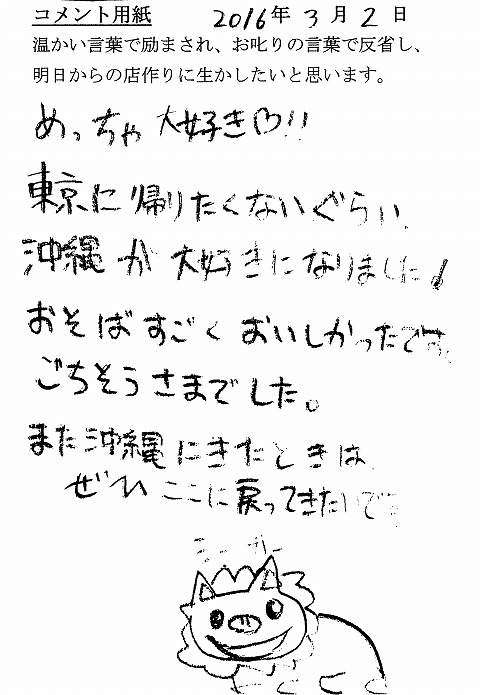 コメント用紙 2016年 3月 2日
温かい言葉で励まされ、お叱りの言葉で反省し、
明日からの店作りに生かしたいと思います。
めっちゃ大好き♡!!
東京に帰りたくないぐらい、
沖縄が大好きになりました!
おそばすごくおいしかったです。
ごちそうさまでした。
また沖縄にきたときは、
ぜひここに戻ってきたいです
シーサー